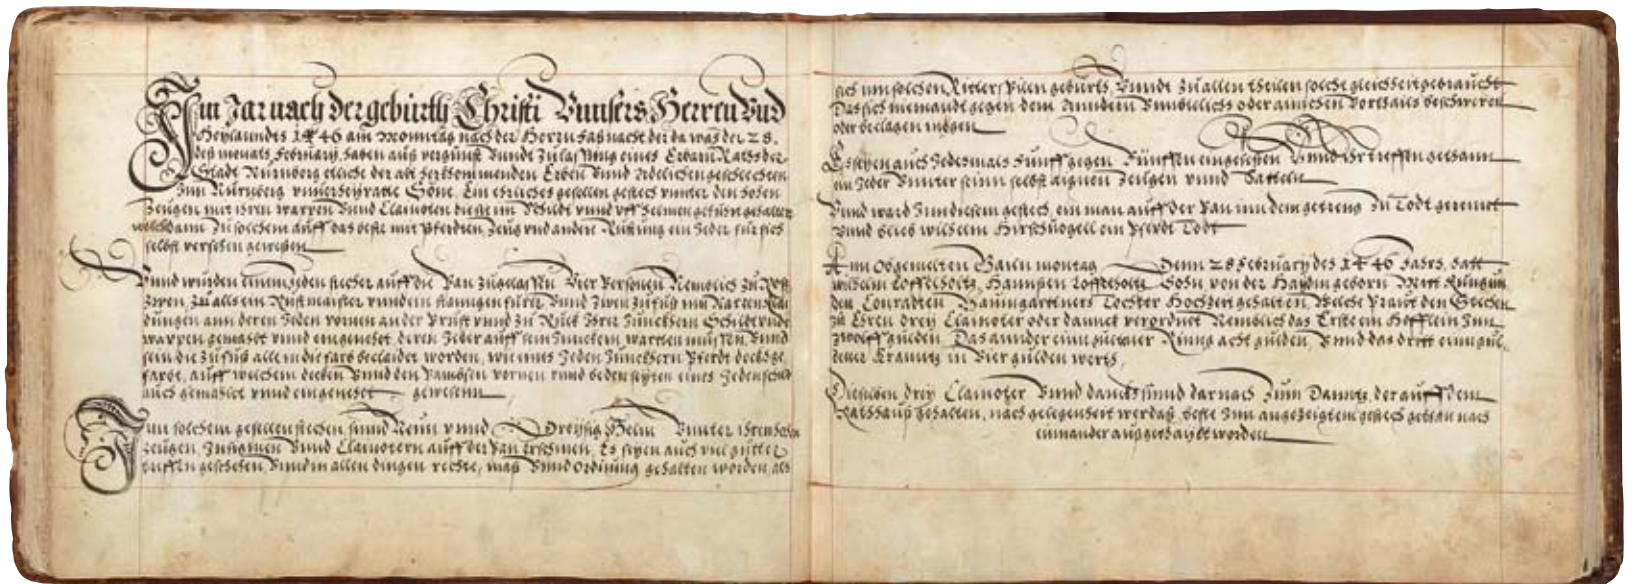 Im Jar nach der geburth Christi Vnnsers Herren vnd
Heylanndts 1446 am Monntag nach der Herrn faßnacht der da was der 28.
deß monats February, haben auß vergunst vnnde Zulassung eines Erbarn Raths der
Stadt Nürnberg etliche der alt herkommenden Erben vnnd Adelichen geschlechten
Zun Nürnberg vnnerheyratte Söne, Ein ehrliches gesellen gestech vnnter den hohen
Zeugen mit ihren wappen vnnd Clainoten die sie im Schildt vnnd vff helmen geführt gehalten
dann Zu solchem auff das beste mit Pferdten, Zeug vnd andere Rüstung ein Jeder für sich
selbst versehen gewesen
Vnnd wurden einem Jeden stecher auff die Pan zugelassen Vier Personen Nemblich Zu Roß
Zwen, Zu als ein Rüstmaister vnnd ein stanngen fürer vnnd Zwen Zu fuß inn Narren
dungen ann deren Jeden vornen an der Prust vnnd Zu Rück Ihres Junckhern Schildt vnnd
wappen gemahlt vnnd eingenehet, deren Jeder auff sein Junckern, wartten müssen, vnnd
sein die Zu fuß alle in die farb beclaidet worden, wie eines Jeden Junckhern Pferdt deckh ge
farbt, auff welchem decken vnnd den vornen vnnd beden seyten eines Jeden schilt
auch gemahlet vnnd eingenehet gewesenn
Inn solchem gesellen stechen, sinnd Neun vnnd Dreyssig Helm vnnter ihren hohen
zeugen, Zusignen vnnd Clainotern auff der Pan erschinen, Es seyen auch viel gutter
treffen geschehen, vnnd in allen dingen rechte, maß vnnd Ordnung gehalten worden, als
sich inn solchen Ritterspilen gebürtt, vnnde Zu allen theilen solche gleichheit gebraucht
Das sich niemandt gegen dem Anndern vnnbillichs oder ainichen Vorthails beschweren
oder beclagen mögen
Es seyen auch Jedesmals Fünff gegen Fünffen eingelassen vnnd ihr treffen gethann
ein Jeder vnnter seinn selbst aignen Zeugen vnnd Satteln
Vnnd ward Zun diesem gestech, ein man auff der Pan inn dem getreng Zu Todt gerennet
vnnd blieb wilhelm Hirschuogell ein Pferdt Todt
Amn Obgemelten montag Denn 28 February des 1446 Jahrs, hatt
wilhelm Loffelholtz, Hannsen Loffelholtz Sohn von der Haydin geborn Mitt Kungun
den Conradten Paumgartners Tochter Hochzeit gehalten Welche Praut den Stechen
zu Ehren drey Clainoter oder dannck verordnet Nemblich das Erste ein Hefftlein Zun
Zwölff gulden Das annder einn guldner Ring acht gulden, Vnnd das dritt einn gul
dener Krannntz in Vier gulden werth,
Dieselben drey Clainoter vnnd dancks sinnd darnach Zum Danntz, der auff dem
Rathhauß gehalten, nach gelegenheit beste Inn angezeigtem gestech gethan nach
einnander außgethaylt worden